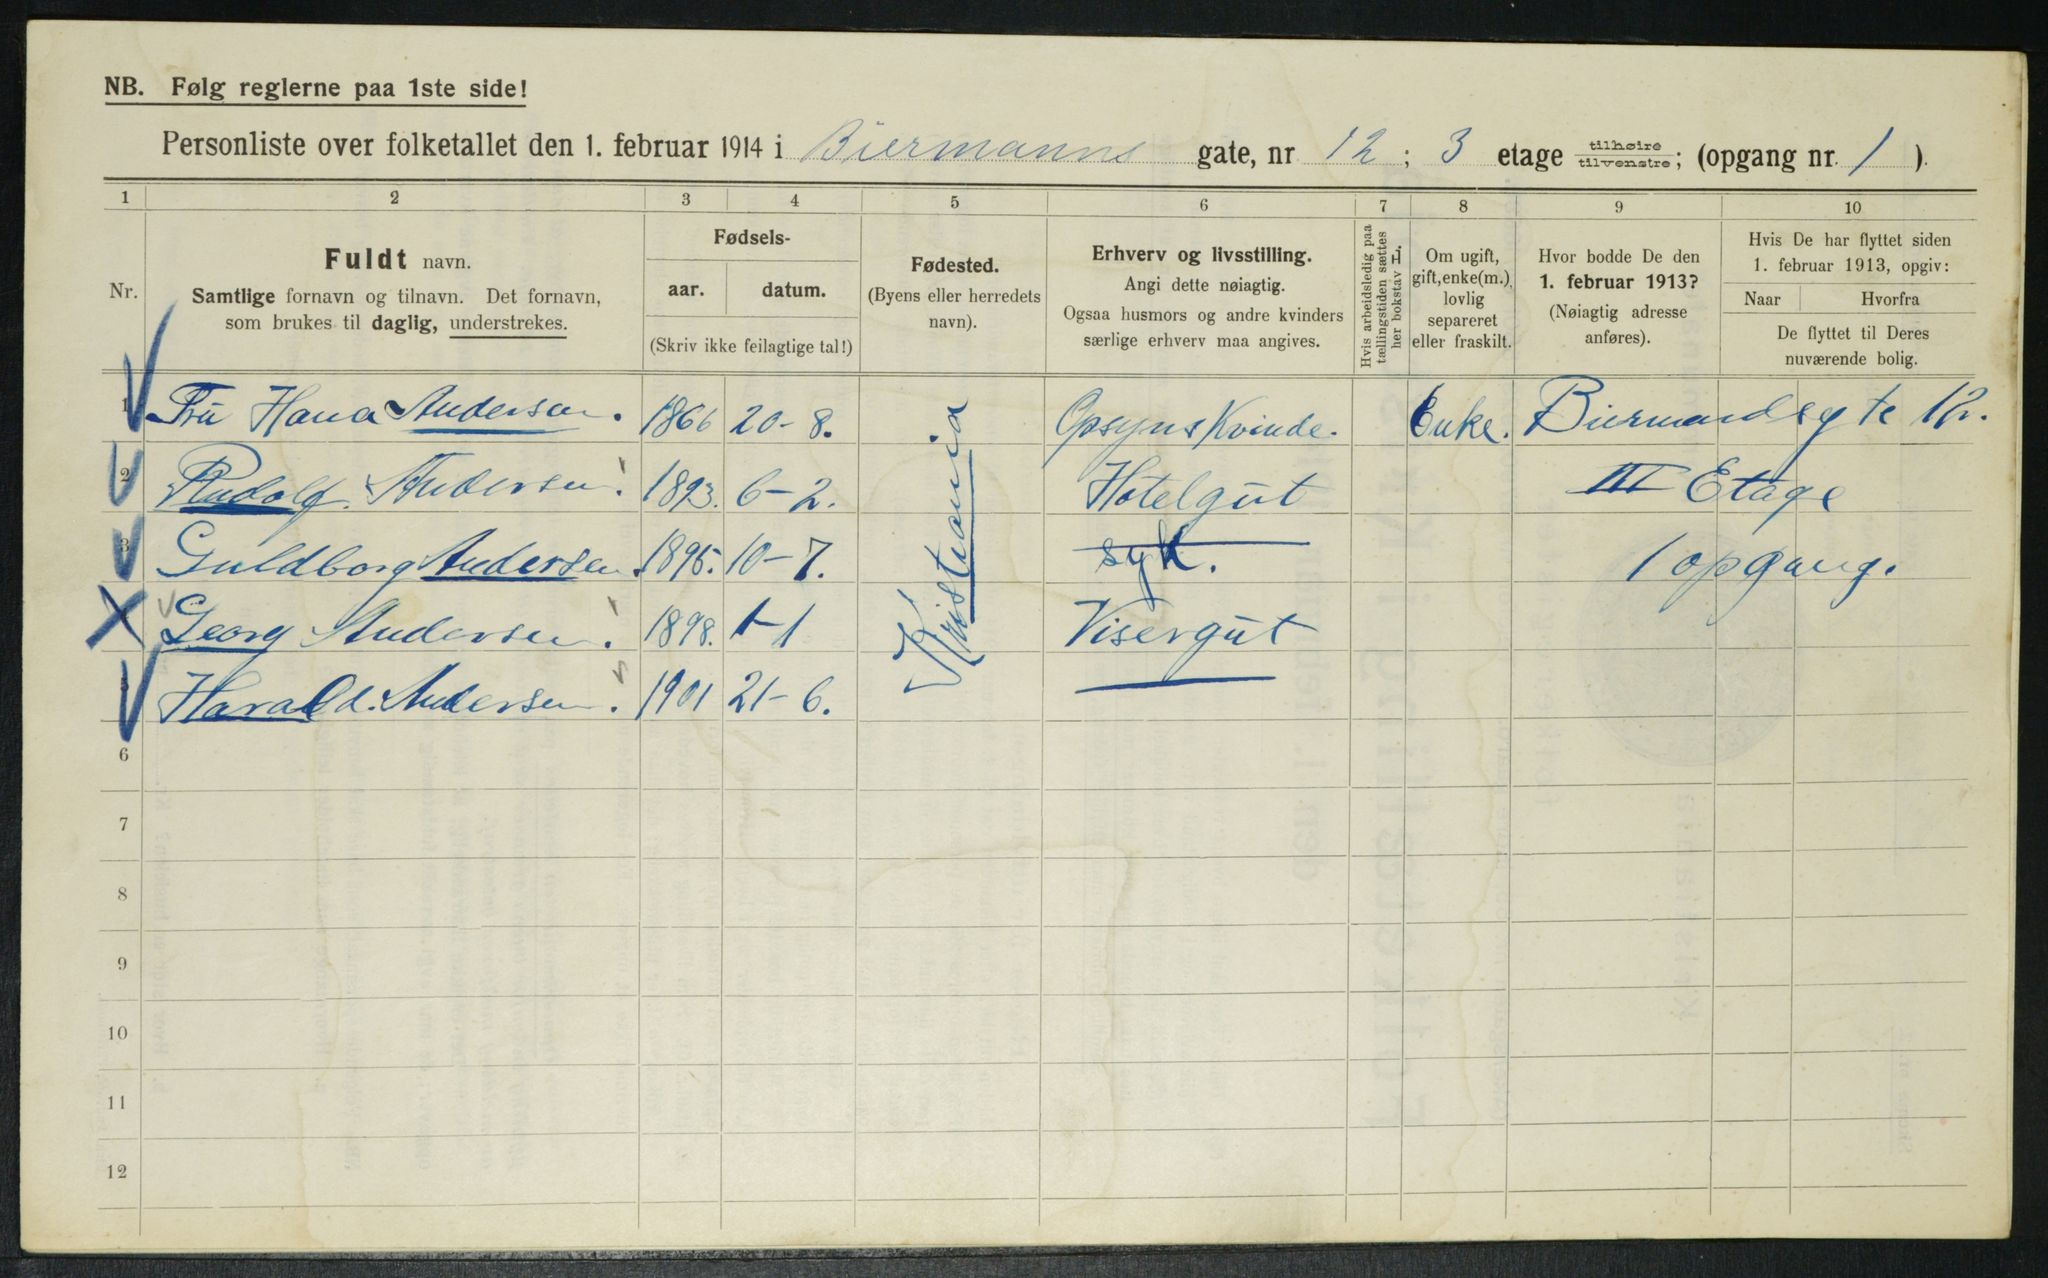 NB. Følg reglerne paa 1ste side!
Personliste over folketallet den 1. februar 1914 i Biermanns gate, nr 12; 3 etage tilhøire tilvenstre; (opgang nr. 1 ).
1 2 3 4 5 6 7 8 9 10
Nr.
Fuldt navn.
Samtlige fornavn og tilnavn. Det fornavn,
som brukes til daglig, understrekes.
Fødsels-
aar. datum.
(Skriv ikke feilagtige tal!)
Fødested.
(Byens eller herredets
navn).
Erhverv og livsstilling.
Angi dette nøiagtig.
Ogsaa husmors og andre kvinders
særlige erhverv maa angives.
Hvis arbeidsledig paa
tællingstiden sættes
her bokstav F.
Om ugift,
gift, enke(m.),
lovlig
separeret
eller fraskilt.
Hvor bodde De den
1. februar 1913?
(Nøiagtig adresse
anføres).
Hvis De har flyttet siden
1. februar 1913, opgiv:
Naar Hvorfra
De flyttet til Deres
nuværende bolig.
1 Fru Hana Andersen. 1866 20-8. Kristiania Opsyns Kvinde. Enke. Biermandsgte 12.
2 Rudolf. Andersen. 1893. 6-2. Hotelgut III Etage
3 Guldborg Andersen. 1895. 10-7. syk. 1 opgang.
Georg Andersen. 1898. 1-1 Visergut
5 Harald. Andersen. 1901 21-6.
6
7
8
9
10
11
12